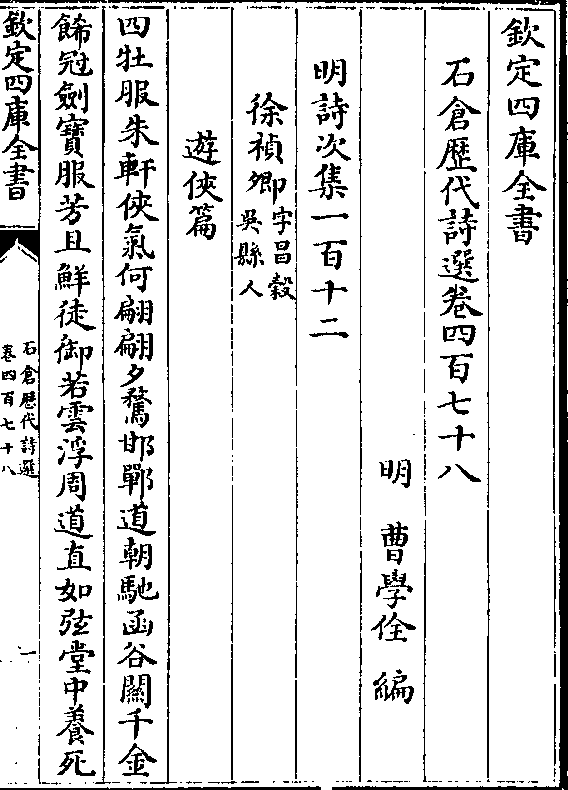 欽定四庫全書
石倉歴代詩選卷四百七十八
明 曹學佺 編
明詩次集一百十二
徐禎卿字昌穀吳縣人
遊俠篇
四牡服朱軒俠氣何翩翩夕騖邯鄲道朝馳函谷闗千金
餙冠劍寶服芳且鮮徒御若雲浮周道直如弦堂中養死
欽定四庫全書
石倉歴代詩選
卷四百七十八
一